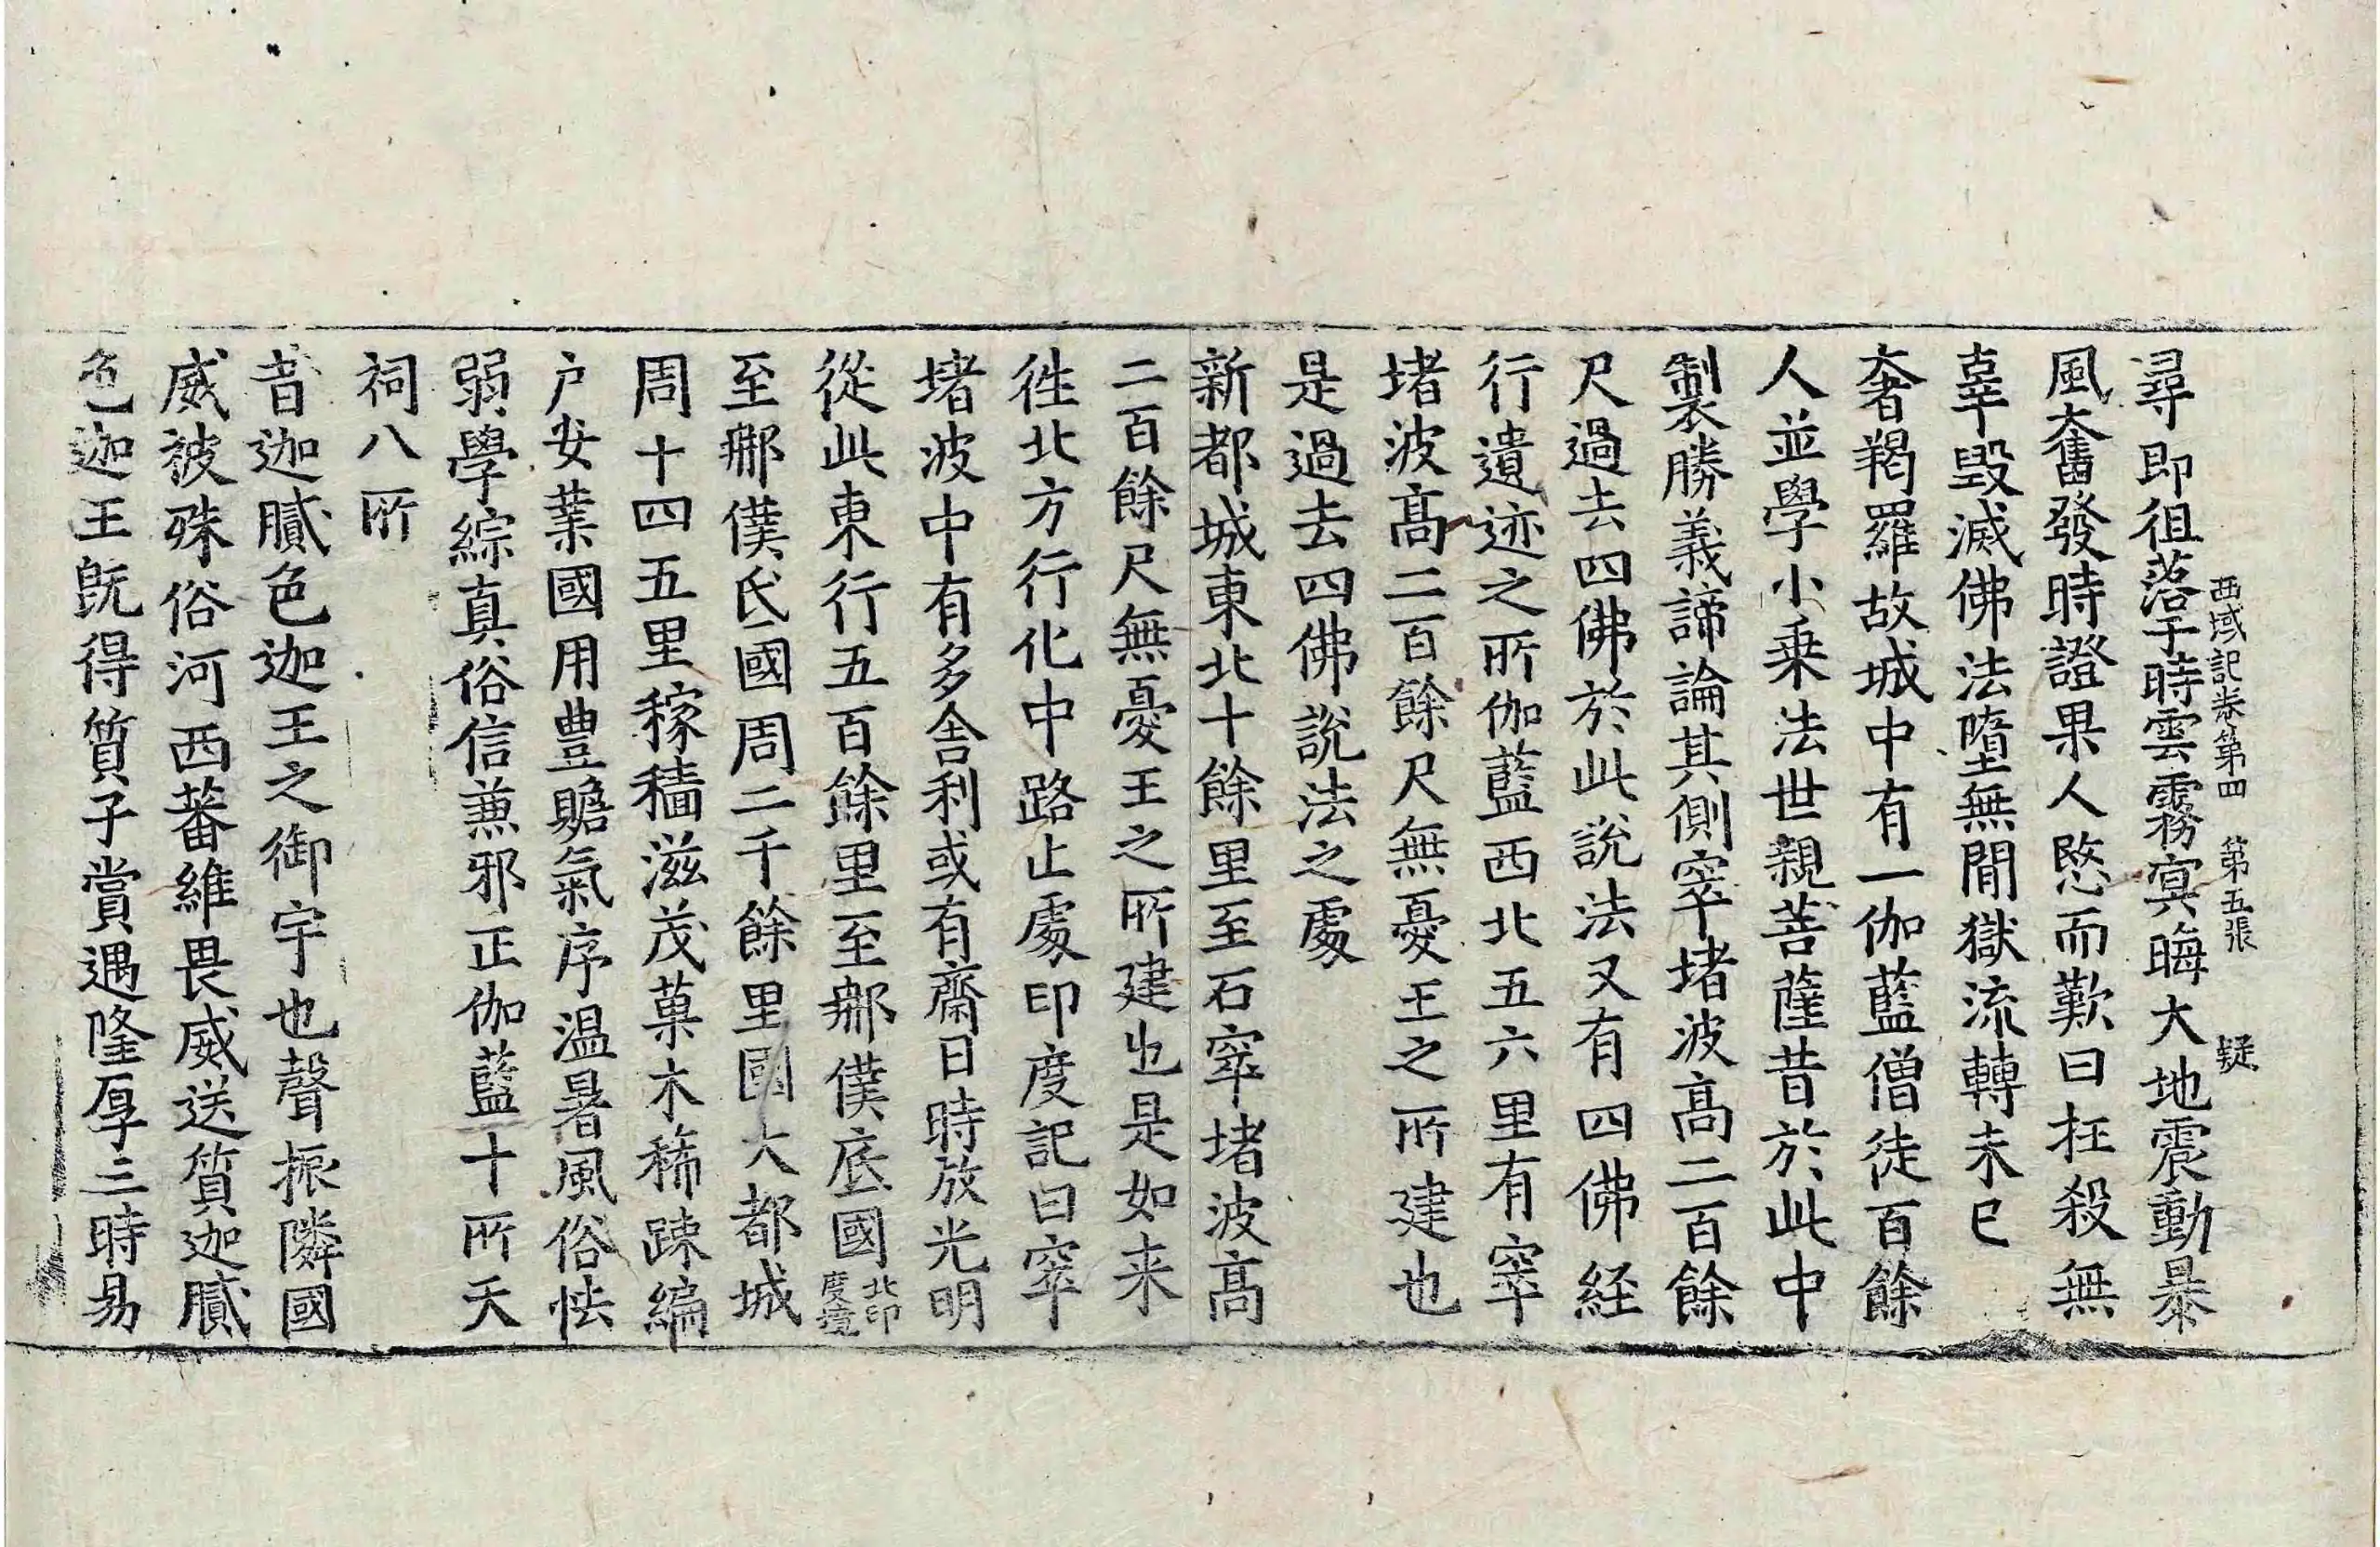 西域記卷第四　第五張　疑
尋即徂落于時雲霧寘晦大地震動暴
風奮發時證果人愍而歎曰枉殺無
辜毀滅佛法墮無間獄流轉未已
奢羯羅故城中有一伽藍僧徒百餘
人並學小乗法世親菩薩昔於此中
製勝義諦論其側窣堵波髙二百餘
尺過去四佛於此說法又有四佛経
行遺迹之所伽藍西北五六里有窣
堵波髙二百餘尺無憂王之所建也
是過去四佛說法之處
新都城東北十餘里至石窣堵波髙
二百餘尺無憂王之所建也是如来
徃北方行化中路止處印度記曰窣
堵波中有多舎利或有齋日時放光明
從此東行五百餘里至那僕底國北印度境
至那僕氐國周二千餘里國大都城
周十四五里稼穡滋茂菓木稀踈編
户安業國用豊贍氣序温暑風俗怯
弱學綜真俗信兼邪正伽藍十所天
祠八所
昔迦膩色迦王之御宇也聲振隣國
威被殊俗河西蕃維畏威送質迦膩
色迦王旣得質子賞遇隆厚三時易